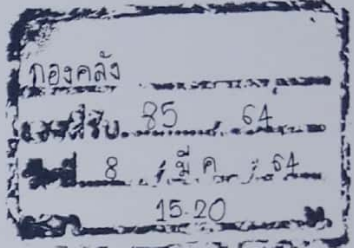 กองคลัง
เลขที่รับ 85 / 64
วันที่ 8 / มี ค / 64
15.20